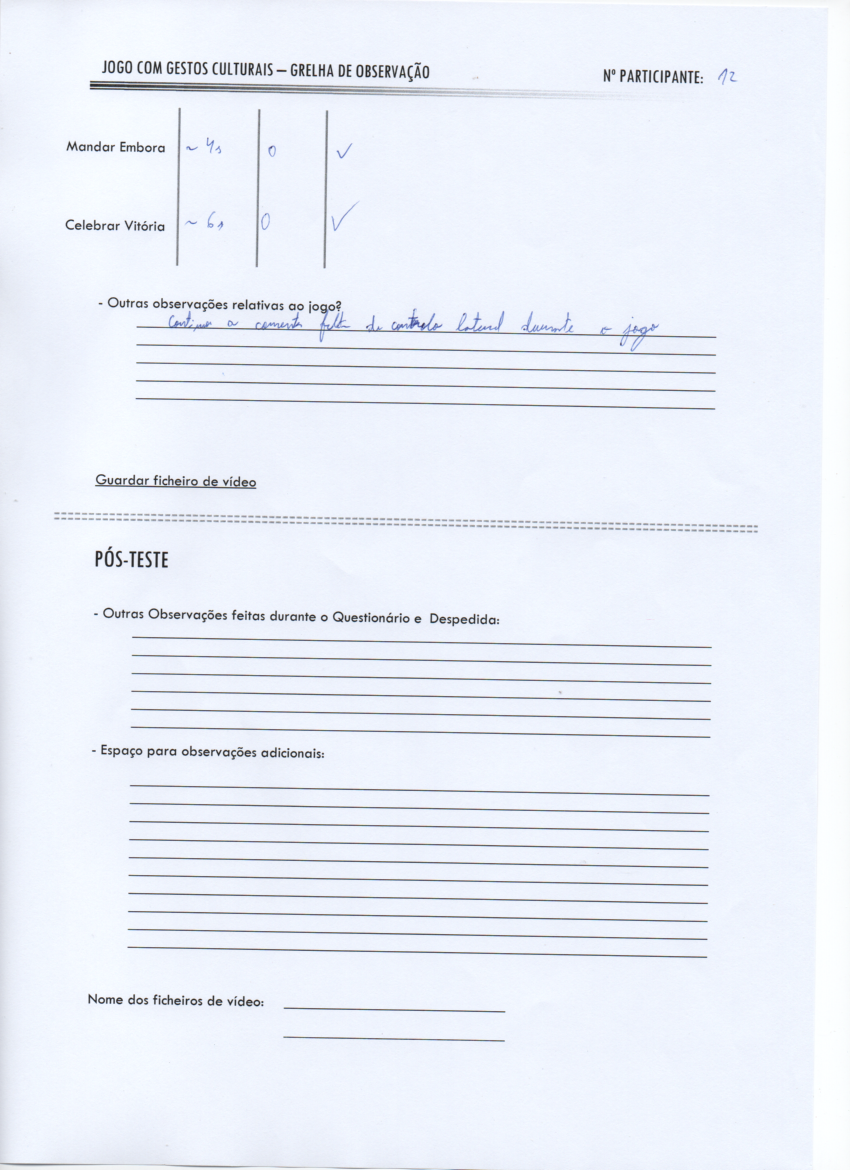 JOGO COM GESTOS CULTURAIS – GRELHA DE OBSERVAÇÃO Nº PARTICIPANTE: 12
Mandar Embora ~ 4s 0 ✓
Celebrar Vitória ~ 6s 0 ✓
- Outras observações relativas ao jogo?
Continua a comentar falta de controlo lateral durante o jogo
Guardar ficheiro de vídeo
PÓS-TESTE
- Outras Observações feitas durante o Questionário e Despedida:
- Espaço para observações adicionais:
Nome dos ficheiros de vídeo: